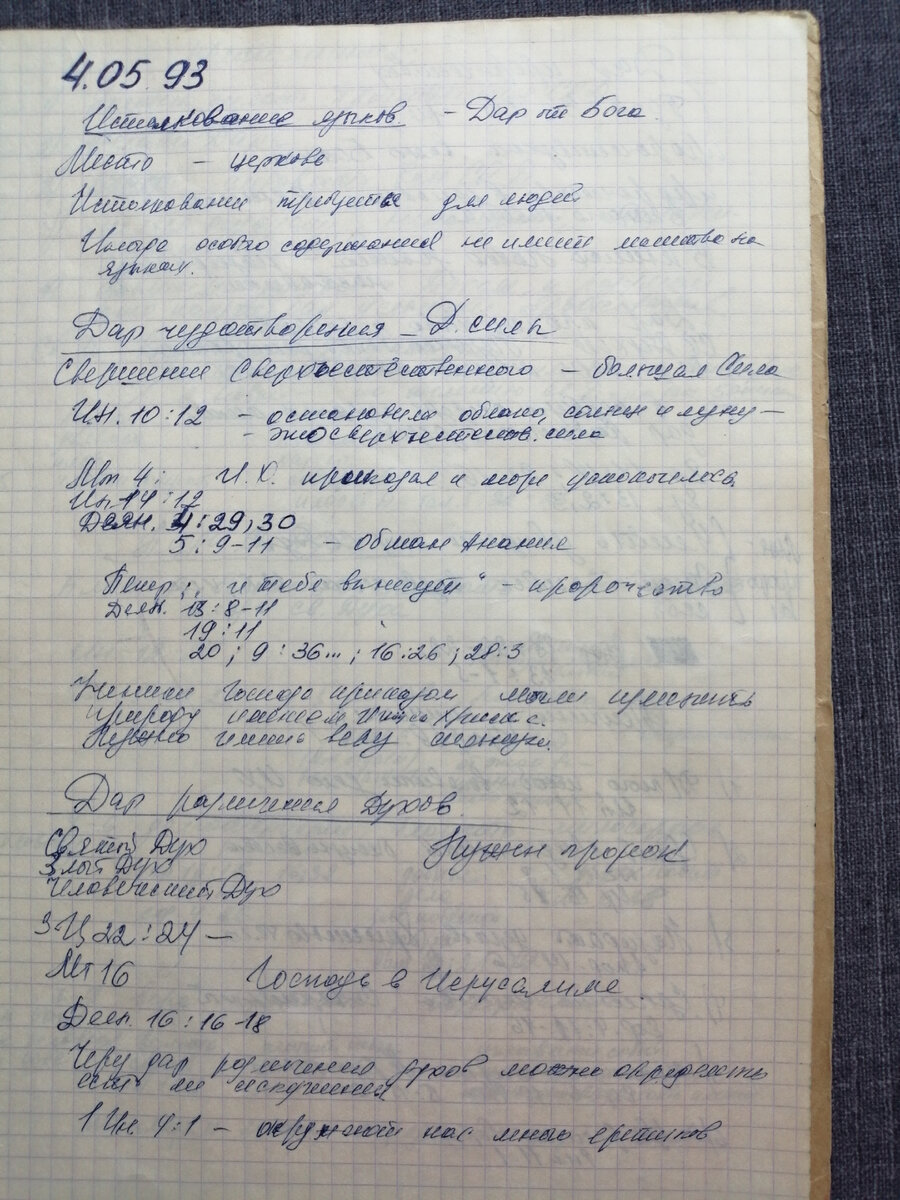 4.05.93
Истолкование языков - Дар от Бога
Место - церковь
Истолкование требуется для людей
Иногда особого содержания не имеет молитва на
языках.
Дар чудотворения - Д. силы
Свершение Сверхъестественного - большая Сила
И.Н. 10:12 - остановили облако, солнце и луну -
- это сверхъестеств. сила
Мт 4: И.Х. приказал и море успокоилось.
Ин. 14:12
Деян. 4:29,30
5:9-11 - обман Анания
Петр: "и тебя вынесут" - пророчество
Деян. 13:8-11
19:11
20; 9:36...; 16:26; 28:3
Ученики Господа приказом могли изменять
природу именем Иисуса Христа.
Нужно иметь веру
Дар различения Духов.
Святый Дух Нужен пророк
Злый Дух
Человеческий Дух
3 Ц 22:24 -
Мт 16 Господь в Иерусалиме
Деян. 16:16-18
Через дар различения духов можно определить
есть ли искушения
1 Ин. 4:1 - окружают нас много еретиков